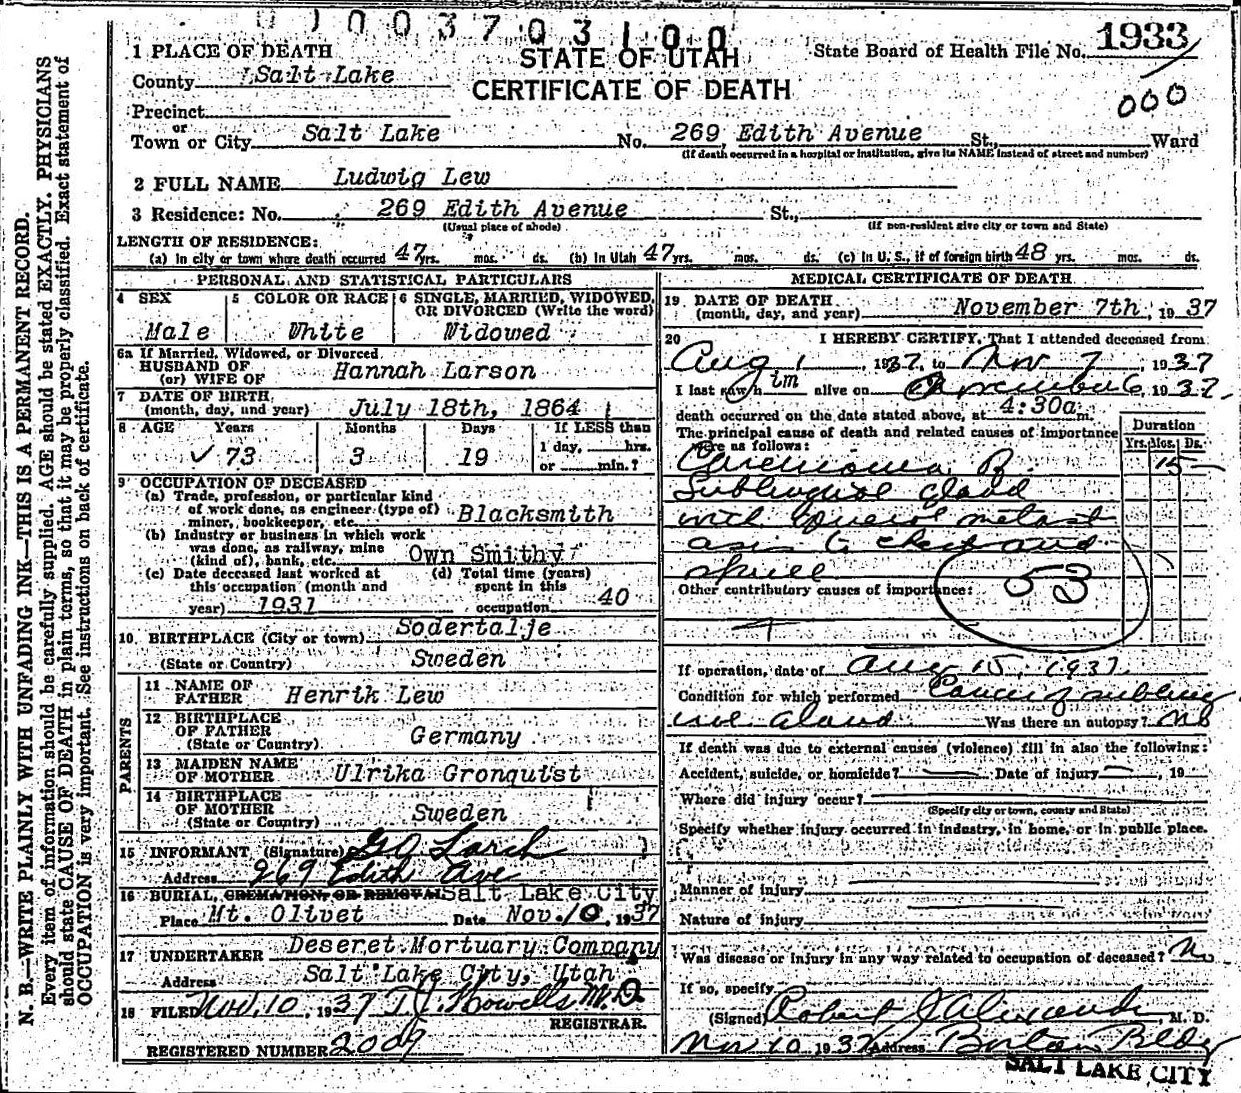 N. B.—WRITE PLAINLY WITH UNFADING INK—THIS IS A PERMANENT RECORD.
Every item of information should be carefully supplied. AGE should be stated EXACTLY. PHYSICIANS
should state CAUSE OF DEATH in plain terms, so that it may be properly classified. Exact statement of
OCCUPATION is very important. See instructions on back of certificate.
0003703100
1 PLACE OF DEATH
STATE OF UTAH
State Board of Health File No. 1933
County Salt Lake
CERTIFICATE OF DEATH
000
Precinct
or
Town or City Salt Lake No. 269 Edith Avenue St., Ward
(If death occurred in a hospital or institution, give its NAME instead of street and number)
2 FULL NAME Ludwig Lew
3 Residence: No. 269 Edith Avenue St.,
(Usual place of abode) (If non-resident give city or town and State)
LENGTH OF RESIDENCE:
(a) In city or town where death occurred 47 yrs. mos. ds. (b) In Utah 47 yrs. mos. ds. (c) In U. S., if of foreign birth 48 yrs. mos. ds.
PERSONAL AND STATISTICAL PARTICULARS
4 SEX
Male
5 COLOR OR RACE
White
6 SINGLE, MARRIED, WIDOWED,
OR DIVORCED (Write the word)
Widowed
6a If Married, Widowed, or Divorced
HUSBAND OF
(or) WIFE OF Hannah Larson
7 DATE OF BIRTH
(month, day, and year) July 18th, 1864
8 AGE Years Months Days If LESS than
1 day, hrs.
73 3 19 or min.?
9 OCCUPATION OF DECEASED
(a) Trade, profession, or particular kind
of work done, as engineer (type of)
miner, bookkeeper, etc. Blacksmith
(b) Industry or business in which work
was done, as railway, mine
(kind of), bank, etc. Own Smithy
(c) Date deceased last worked at
this occupation (month and
year) 1931
(d) Total time (years)
spent in this
occupation 40
10 BIRTHPLACE (City or town) Sodertalje
(State or Country) Sweden
PARENTS
11 NAME OF
FATHER Henrik Lew
12 BIRTHPLACE
OF FATHER
(State or Country) Germany
13 MAIDEN NAME
OF MOTHER Ulrika Gronquist
14 BIRTHPLACE
OF MOTHER
(State or Country) Sweden
15 INFORMANT (Signature)
Address 269 Edith Ave
16 BURIAL, CREMATION, OR REMOVAL Salt Lake City
Place Mt. Olivet Date Nov. 10, 1937
17 UNDERTAKER Deseret Mortuary Company
Address Salt Lake City, Utah
18 FILED Nov. 10, 1937 Howells M.D.
REGISTRAR.
REGISTERED NUMBER 2009
MEDICAL CERTIFICATE OF DEATH
19 DATE OF DEATH
(month, day, and year) November 7th, 1937
20 I HEREBY CERTIFY, That I attended deceased from
Aug 1, 1937, to Nov 7, 1937
I last saw him alive on November 6, 1937.
death occurred on the date stated above, at 4:30a m.
The principal cause of death and related causes of importance
were as follows:
Duration
Yrs. Mos. Ds.
Carcinoma 15
Sublingual gland
with general metast
asis to chest and
skull
53
Other contributory causes of importance:
If operation, date of Aug 15, 1937.
Condition for which performed Cancer of subling
ual gland Was there an autopsy? No
If death was due to external causes (violence) fill in also the following:
Accident, suicide, or homicide? Date of injury , 19
Where did injury occur?
(Specify city or town, county and State)
Specify whether injury occurred in industry, in home, or in public place.
Manner of injury
Nature of injury
Was disease or injury in any way related to occupation of deceased? No
If so, specify
(Signed) Robert J Alexander M. D.
Nov 10 1937 Address Boston Bldg
SALT LAKE CITY